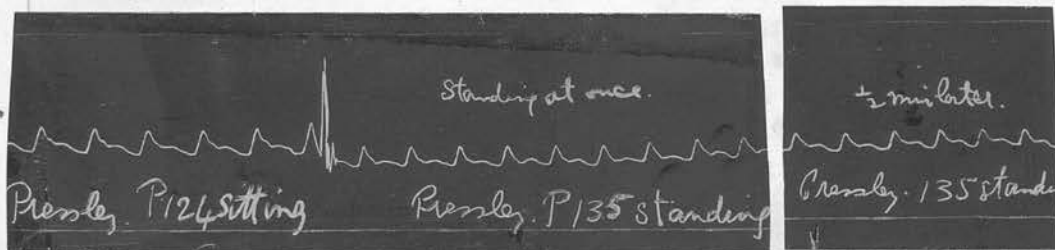 Standing at once.
½ min later.
Pressley. P124 sitting
Pressley. P135 standing
Pressley. 135 stand